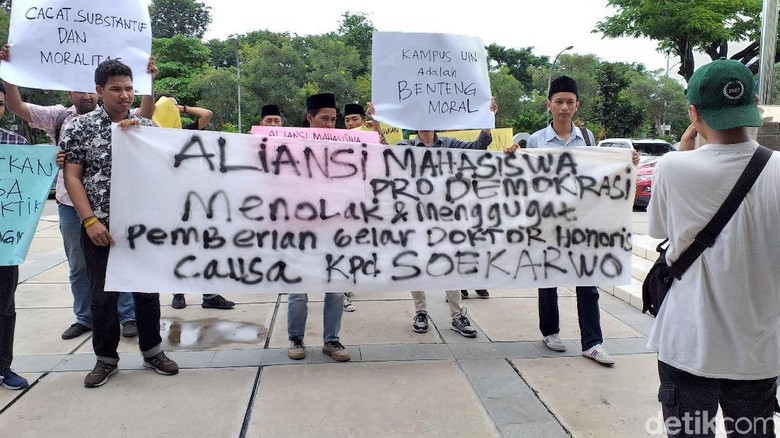 CACAT SUBSTANTIF
DAN
MORALITAS
KAMPUS UIN
Adalah
BENTENG
MORAL
ALIANSI MAHASISWA
PRO DEMOKRASI
MenoLAK & menggugat
Pemberian Gelar DOKTOR Honoris
Causa Kpd. SOEKARWO
ALIANSI MAHASISWA
detikcom